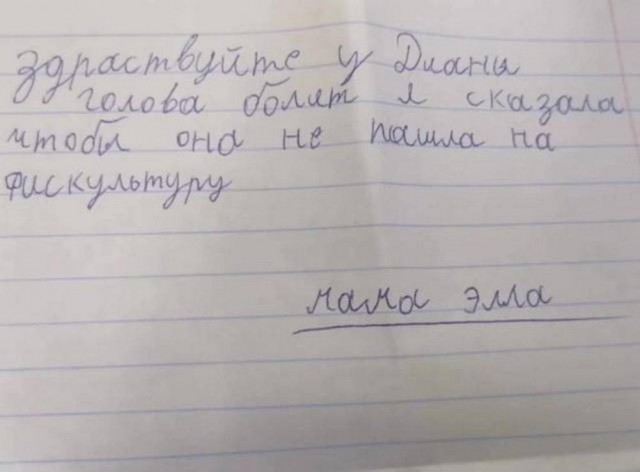 здраствуйте у Дианы
голова болит я сказала
чтобы она не пашла на
фискультуру
мама элла